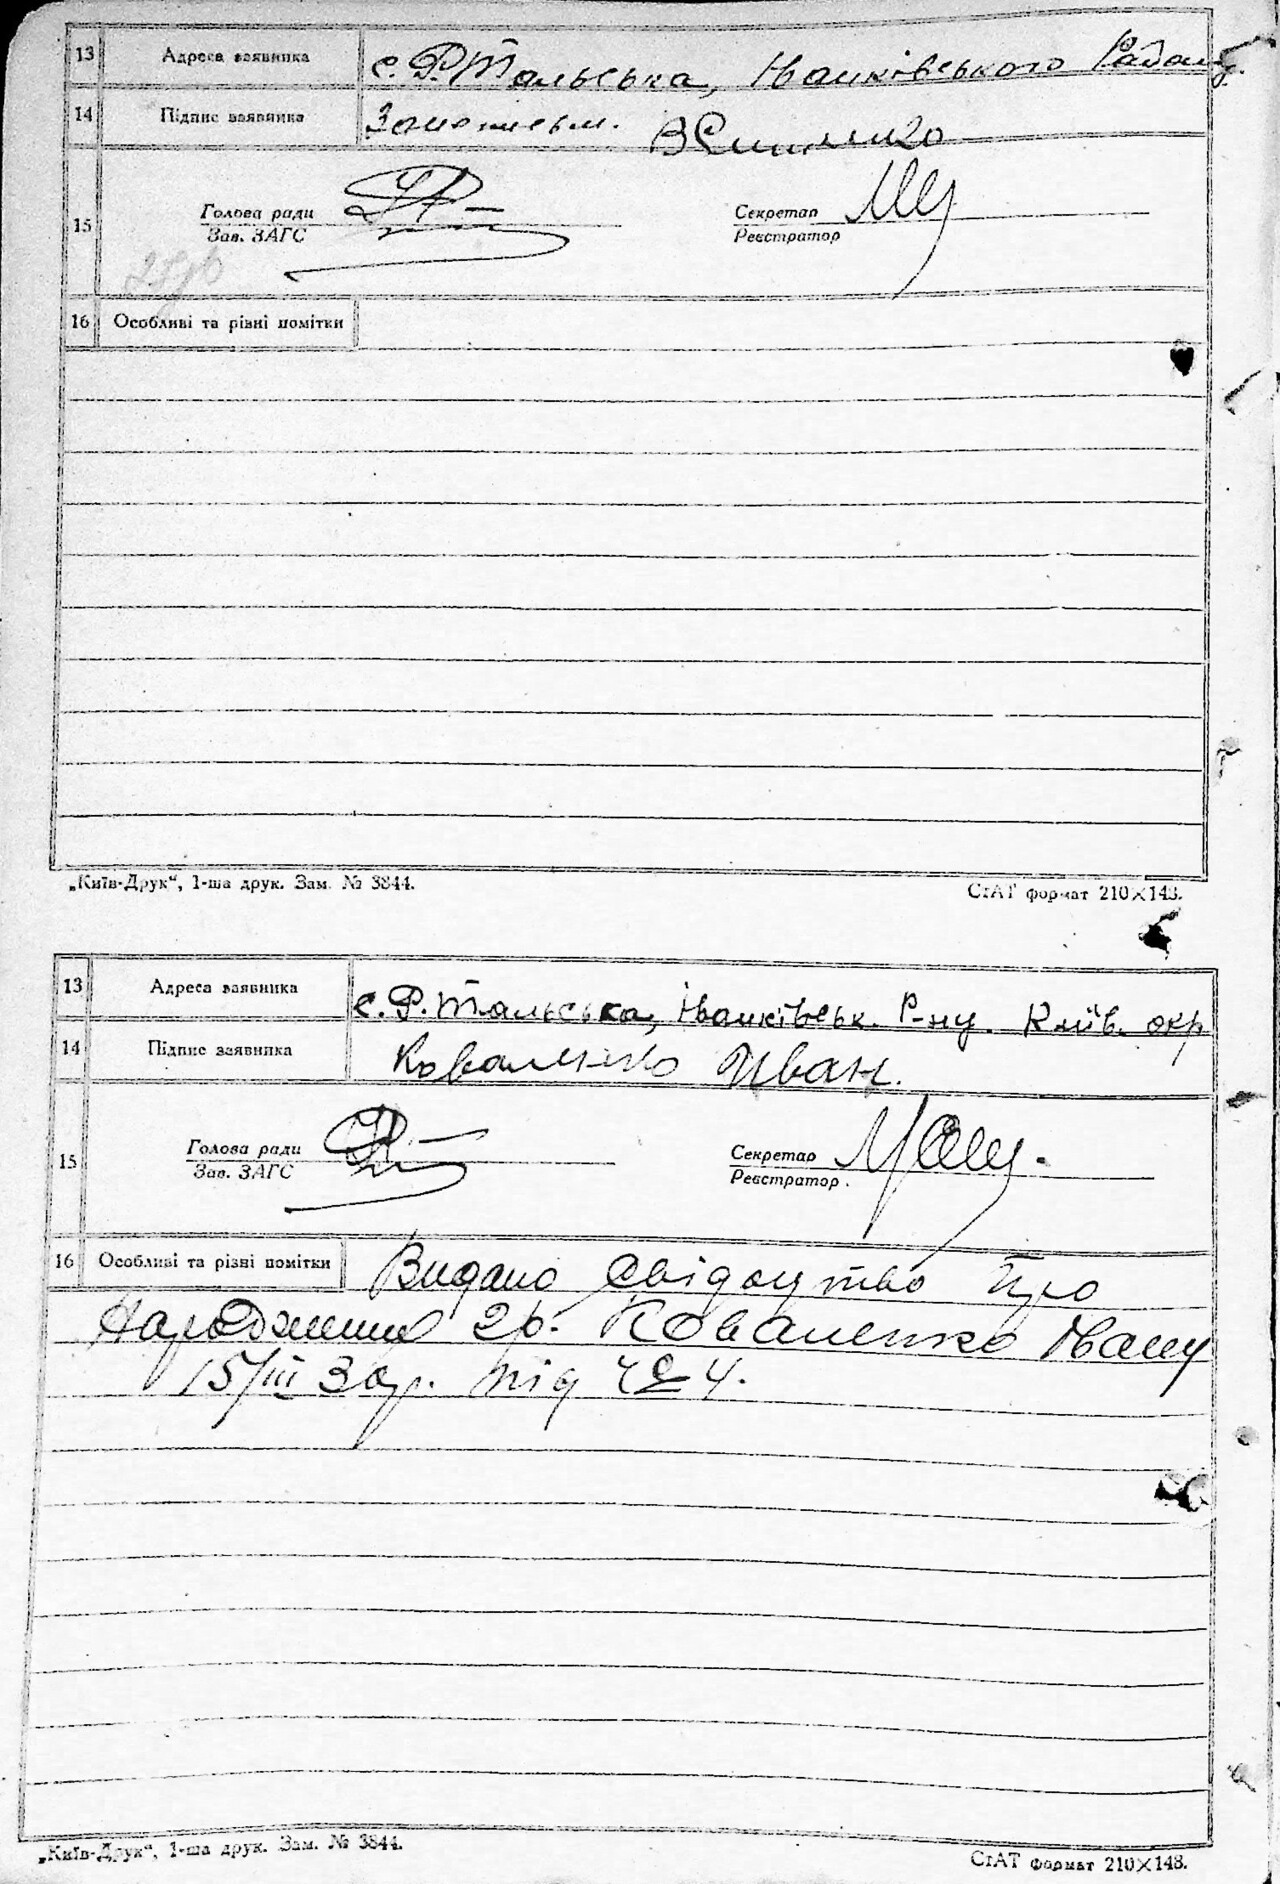 13 Адреса заявника с. Р. Тальська, Іванківського Району.
14 Підпис заявника
15 Голова ради Секретар
Зав. ЗАГС Реєстратор
16 Особливі та рівні помітки
„Київ-Друк“, 1-ша друк. Зам. № 3844. СтАТ формат 210×148.
13 Адреса заявника с. Р. Тальська, Іванківськ. Р-ну. Київ. окр
14 Підпис заявника Коваленко Иван.
15 Голова ради Секретар
Зав. ЗАГС Реєстратор.
16 Особливі та різні помітки Видано свідоцтво про
народження 2р. Коваленко Івану
15/III 30р. під ч 24.
„Київ-Друк“, 1-ша друк. Зам. № 3844. СтАТ формат 210×148.